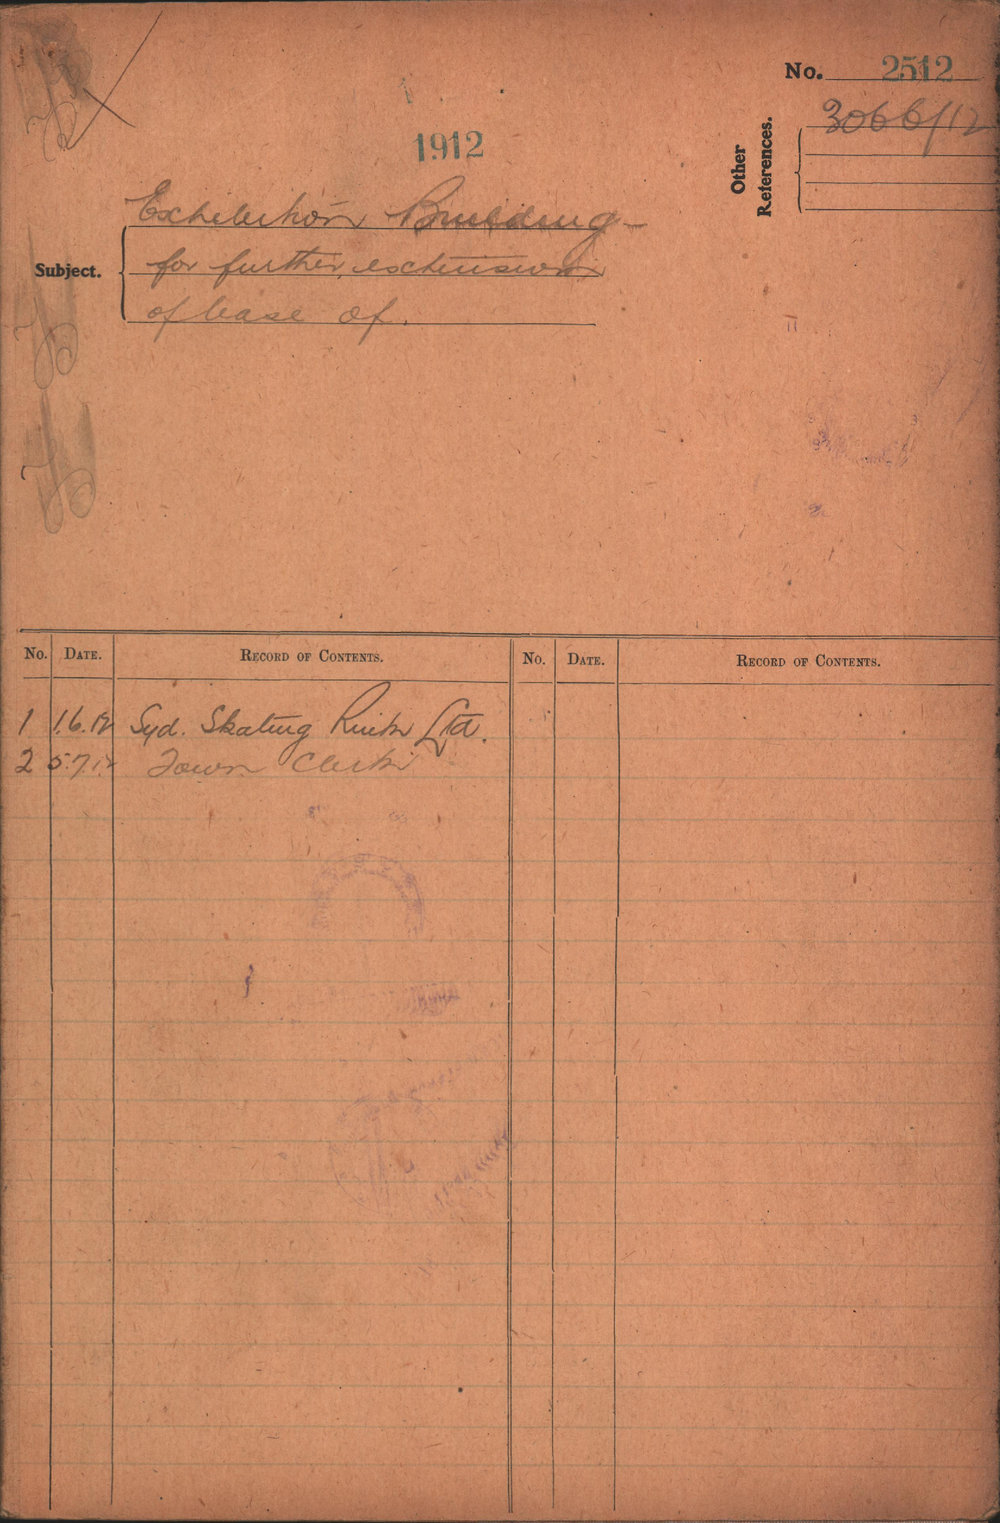 No. 2512
Other References.
3066/12
1912
Subject.
Exhibition Building -
for further extension
of lease of.
No. Date. Record of Contents. No. Date. Record of Contents.
1 1.6.12 Syd. Skating Rink Ltd.
2 5.7.12 Town Clerk